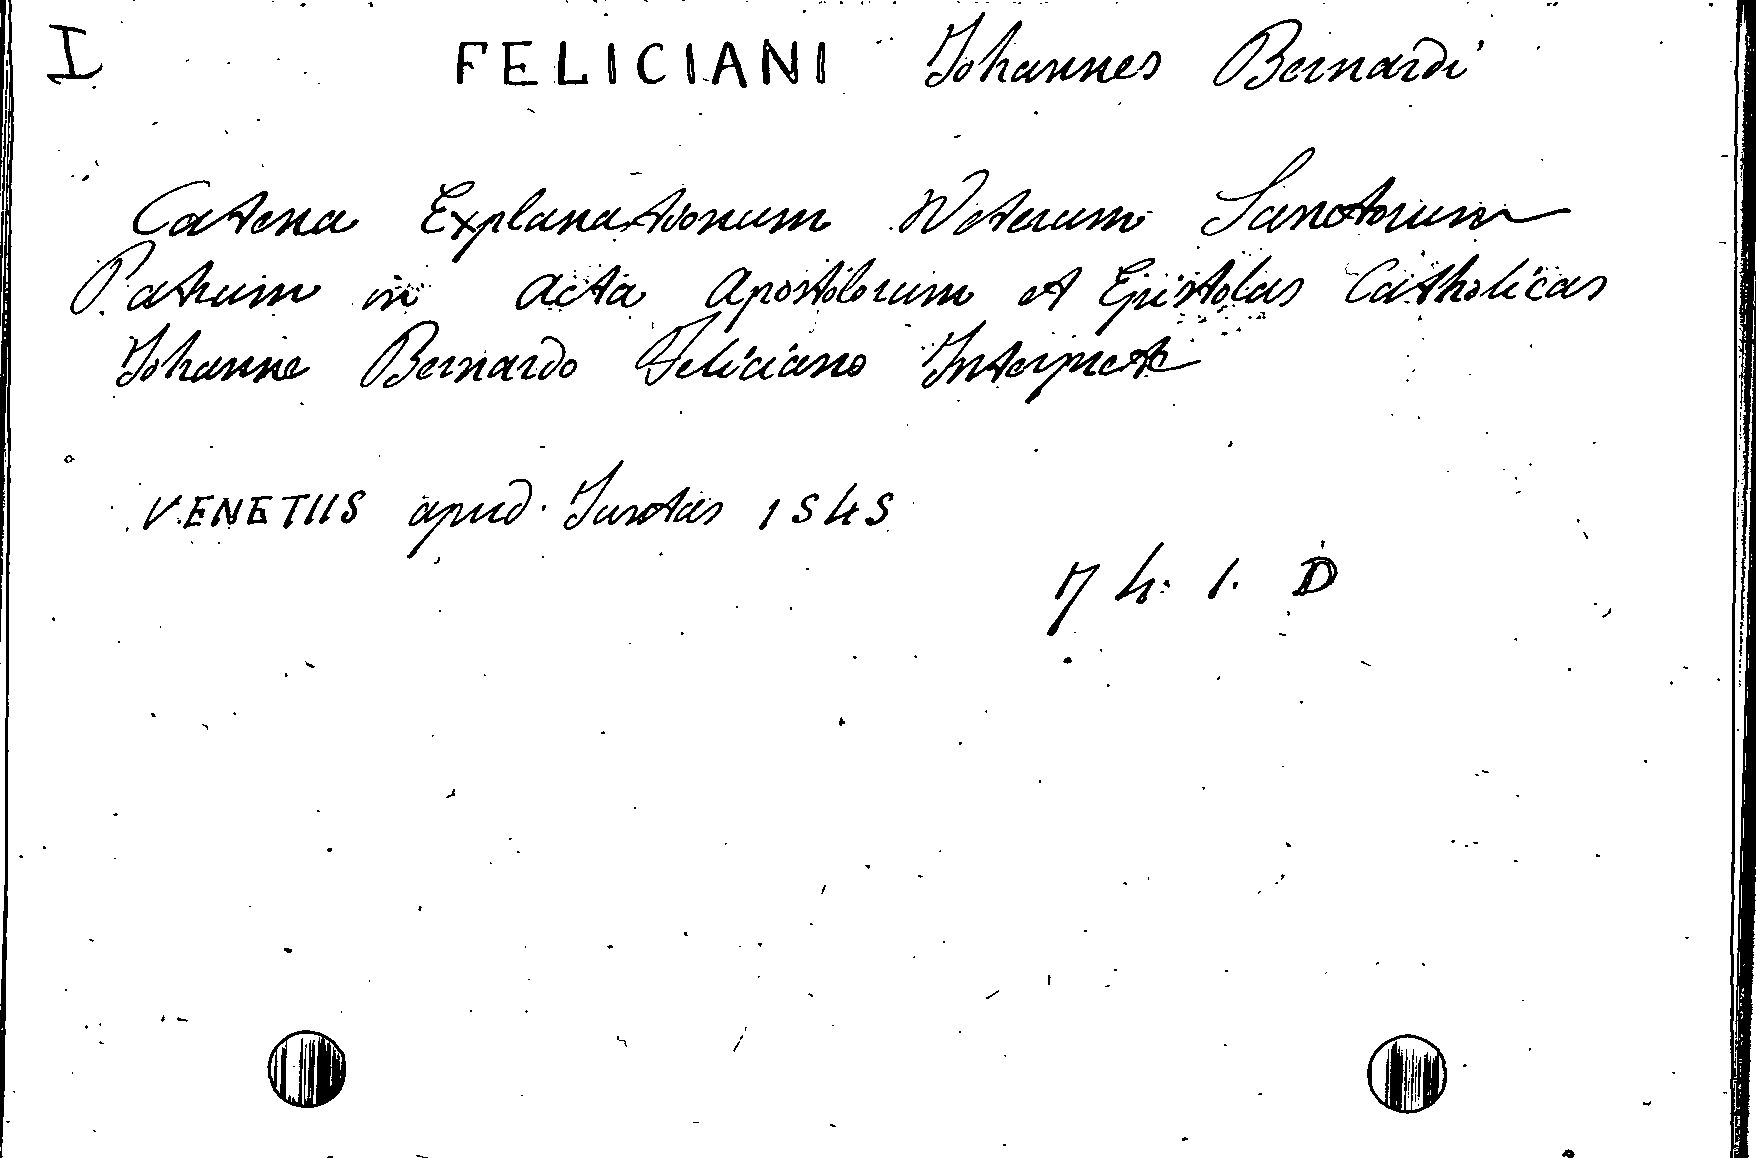 I FELICIANI Johannes Bernardi
Catena Explanationum Veterum Sanctorum
Patrum in Acta Apostolorum et Epistolas Catholicas
Johanne Bernardo Feliciano Interprete
VENETIIS apud Juntas 1545
74. 1. D